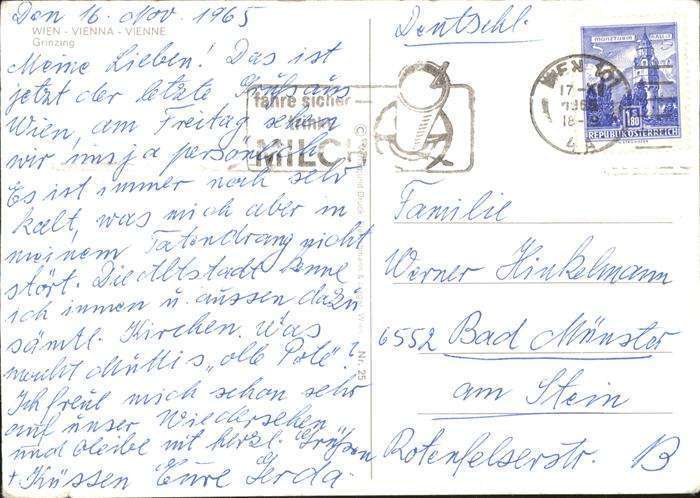 Den 16. Nov. 1965
WIEN - VIENNA - VIENNE
Grinzing
Meine Lieben! Das ist
jetzt der letzte Gruß aus
Wien, am Freitag sehen
wir uns ja persönlich.
Es ist immer noch sehr
kalt, was mich aber in
meinem Tatendrang nicht
stört. Die Altstadt kenne
ich innen u. aussen dazu
sämtl. Kirchen. Was
macht Muttis "olle Pote"?
Ich freue mich schon sehr
auf unser Wiedersehen
und bleibe mit herzl. Grüßen
+ Küssen Eure Gerda.
fahre sicher
MILCH
Nr. 25
Deutschl.
WIEN
17.-XI
1965
18-
4A
1.80
REPUBLIK ÖSTERREICH
Familie
Werner Hinkelmann
6552 Bad Münster
am Stein
Rotenfelserstr. 13